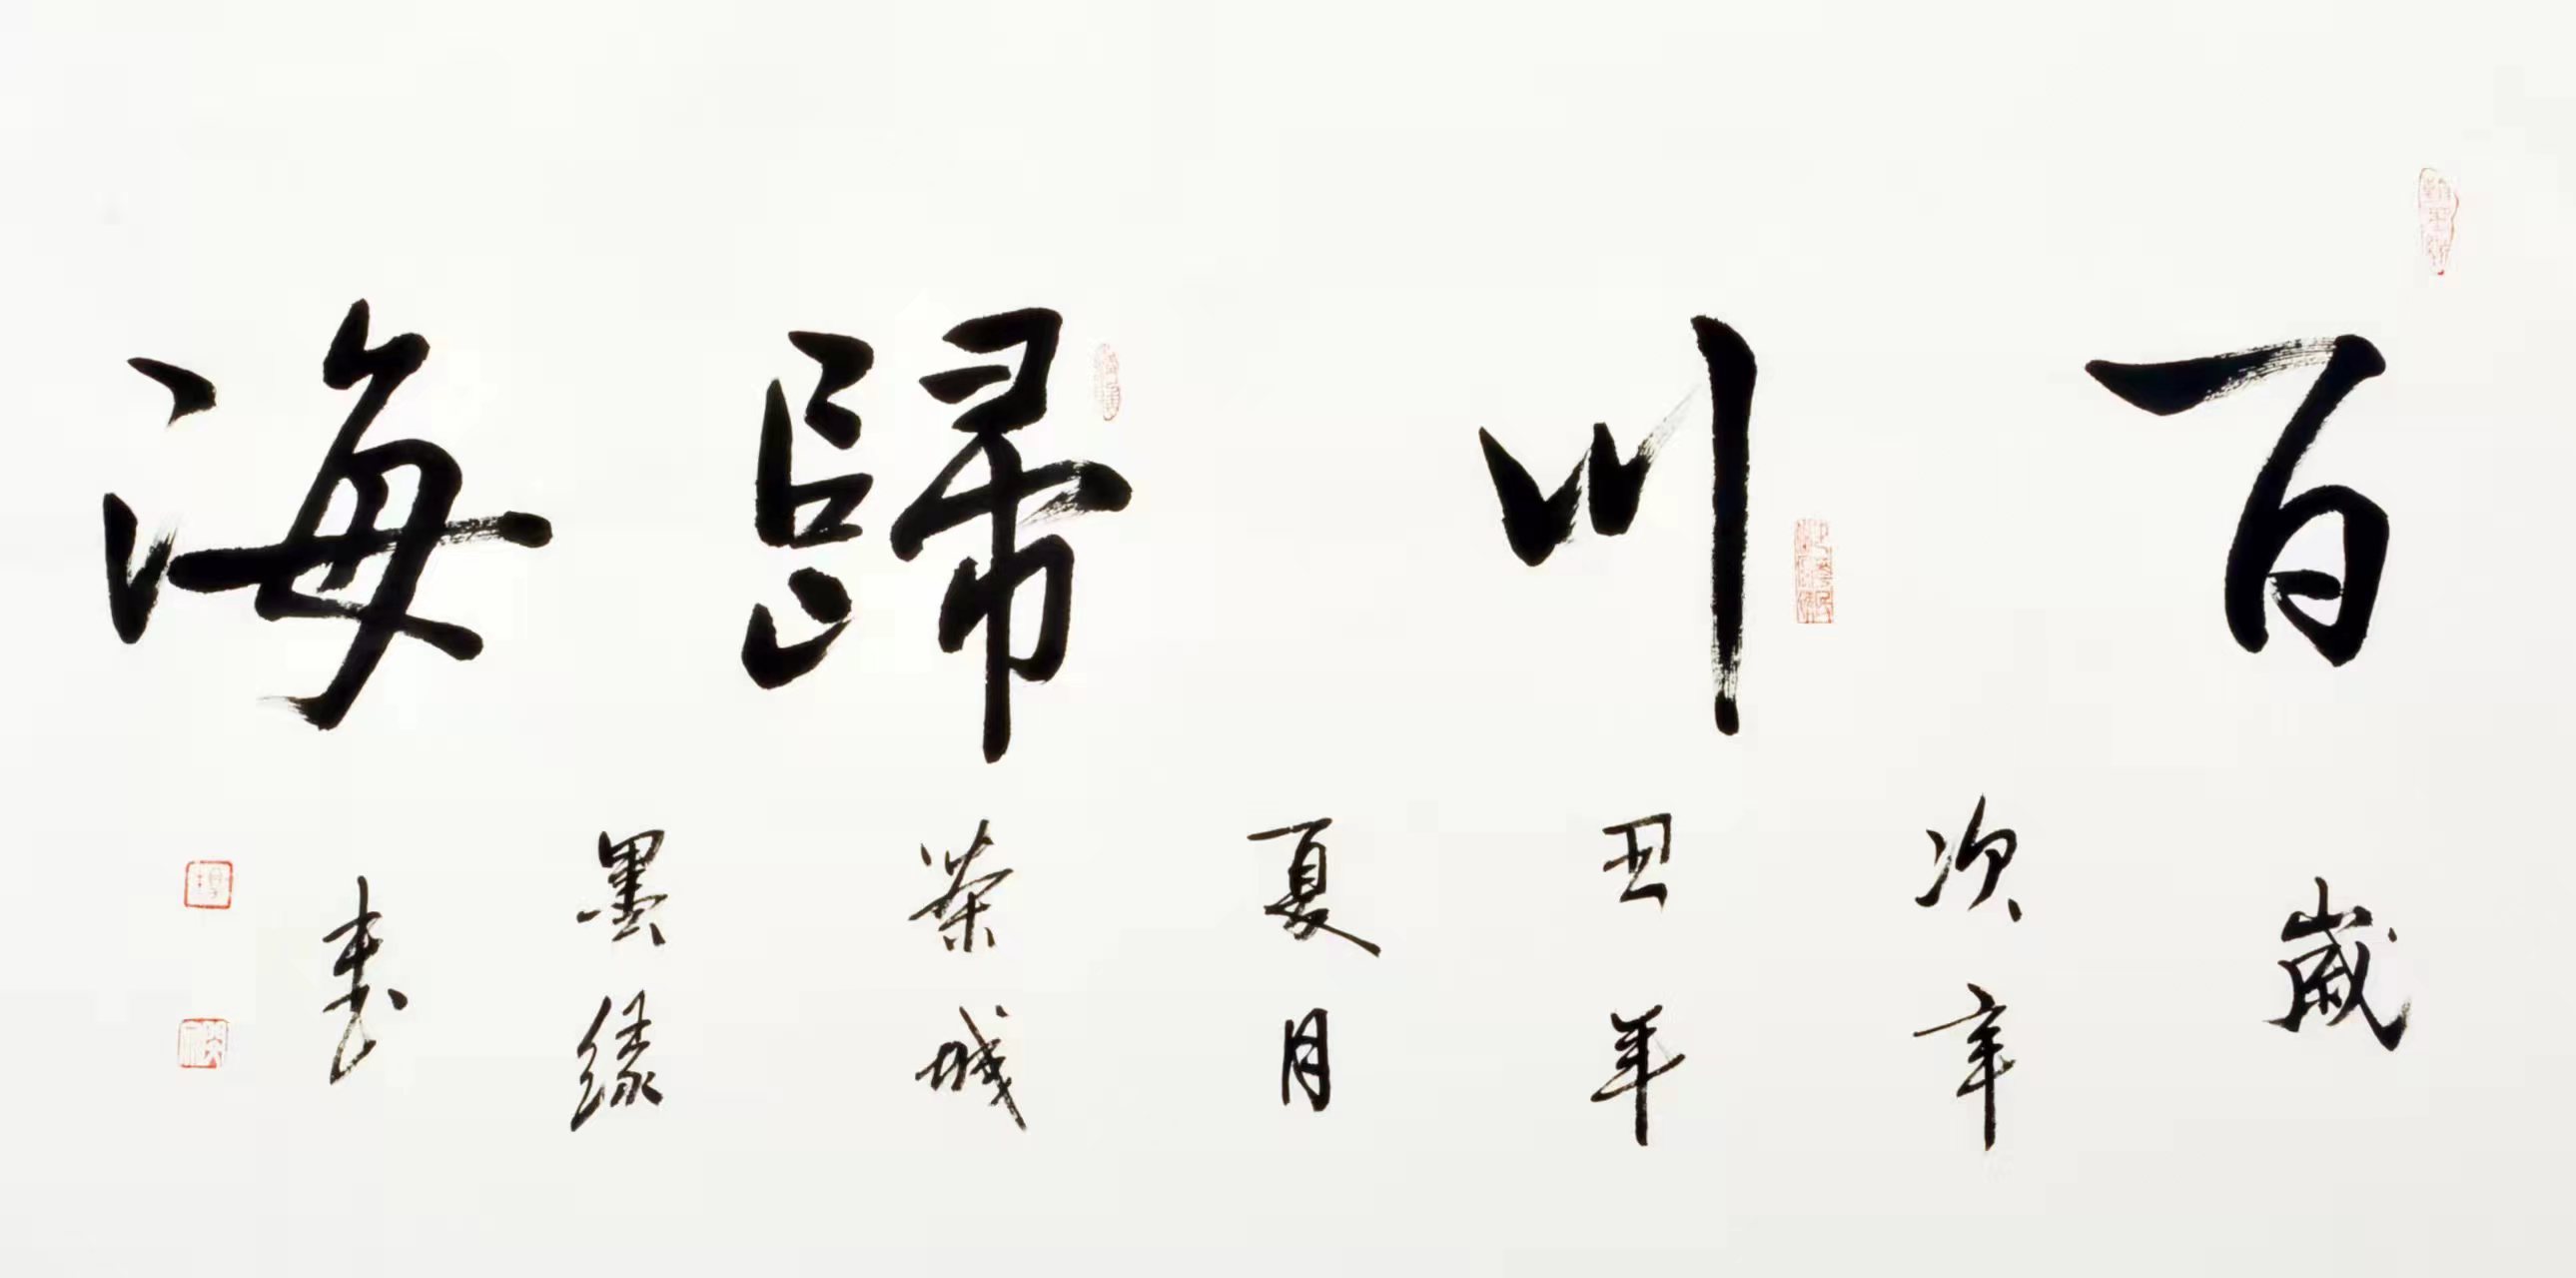 百川歸海
歲次辛丑年夏月榮城墨緣書